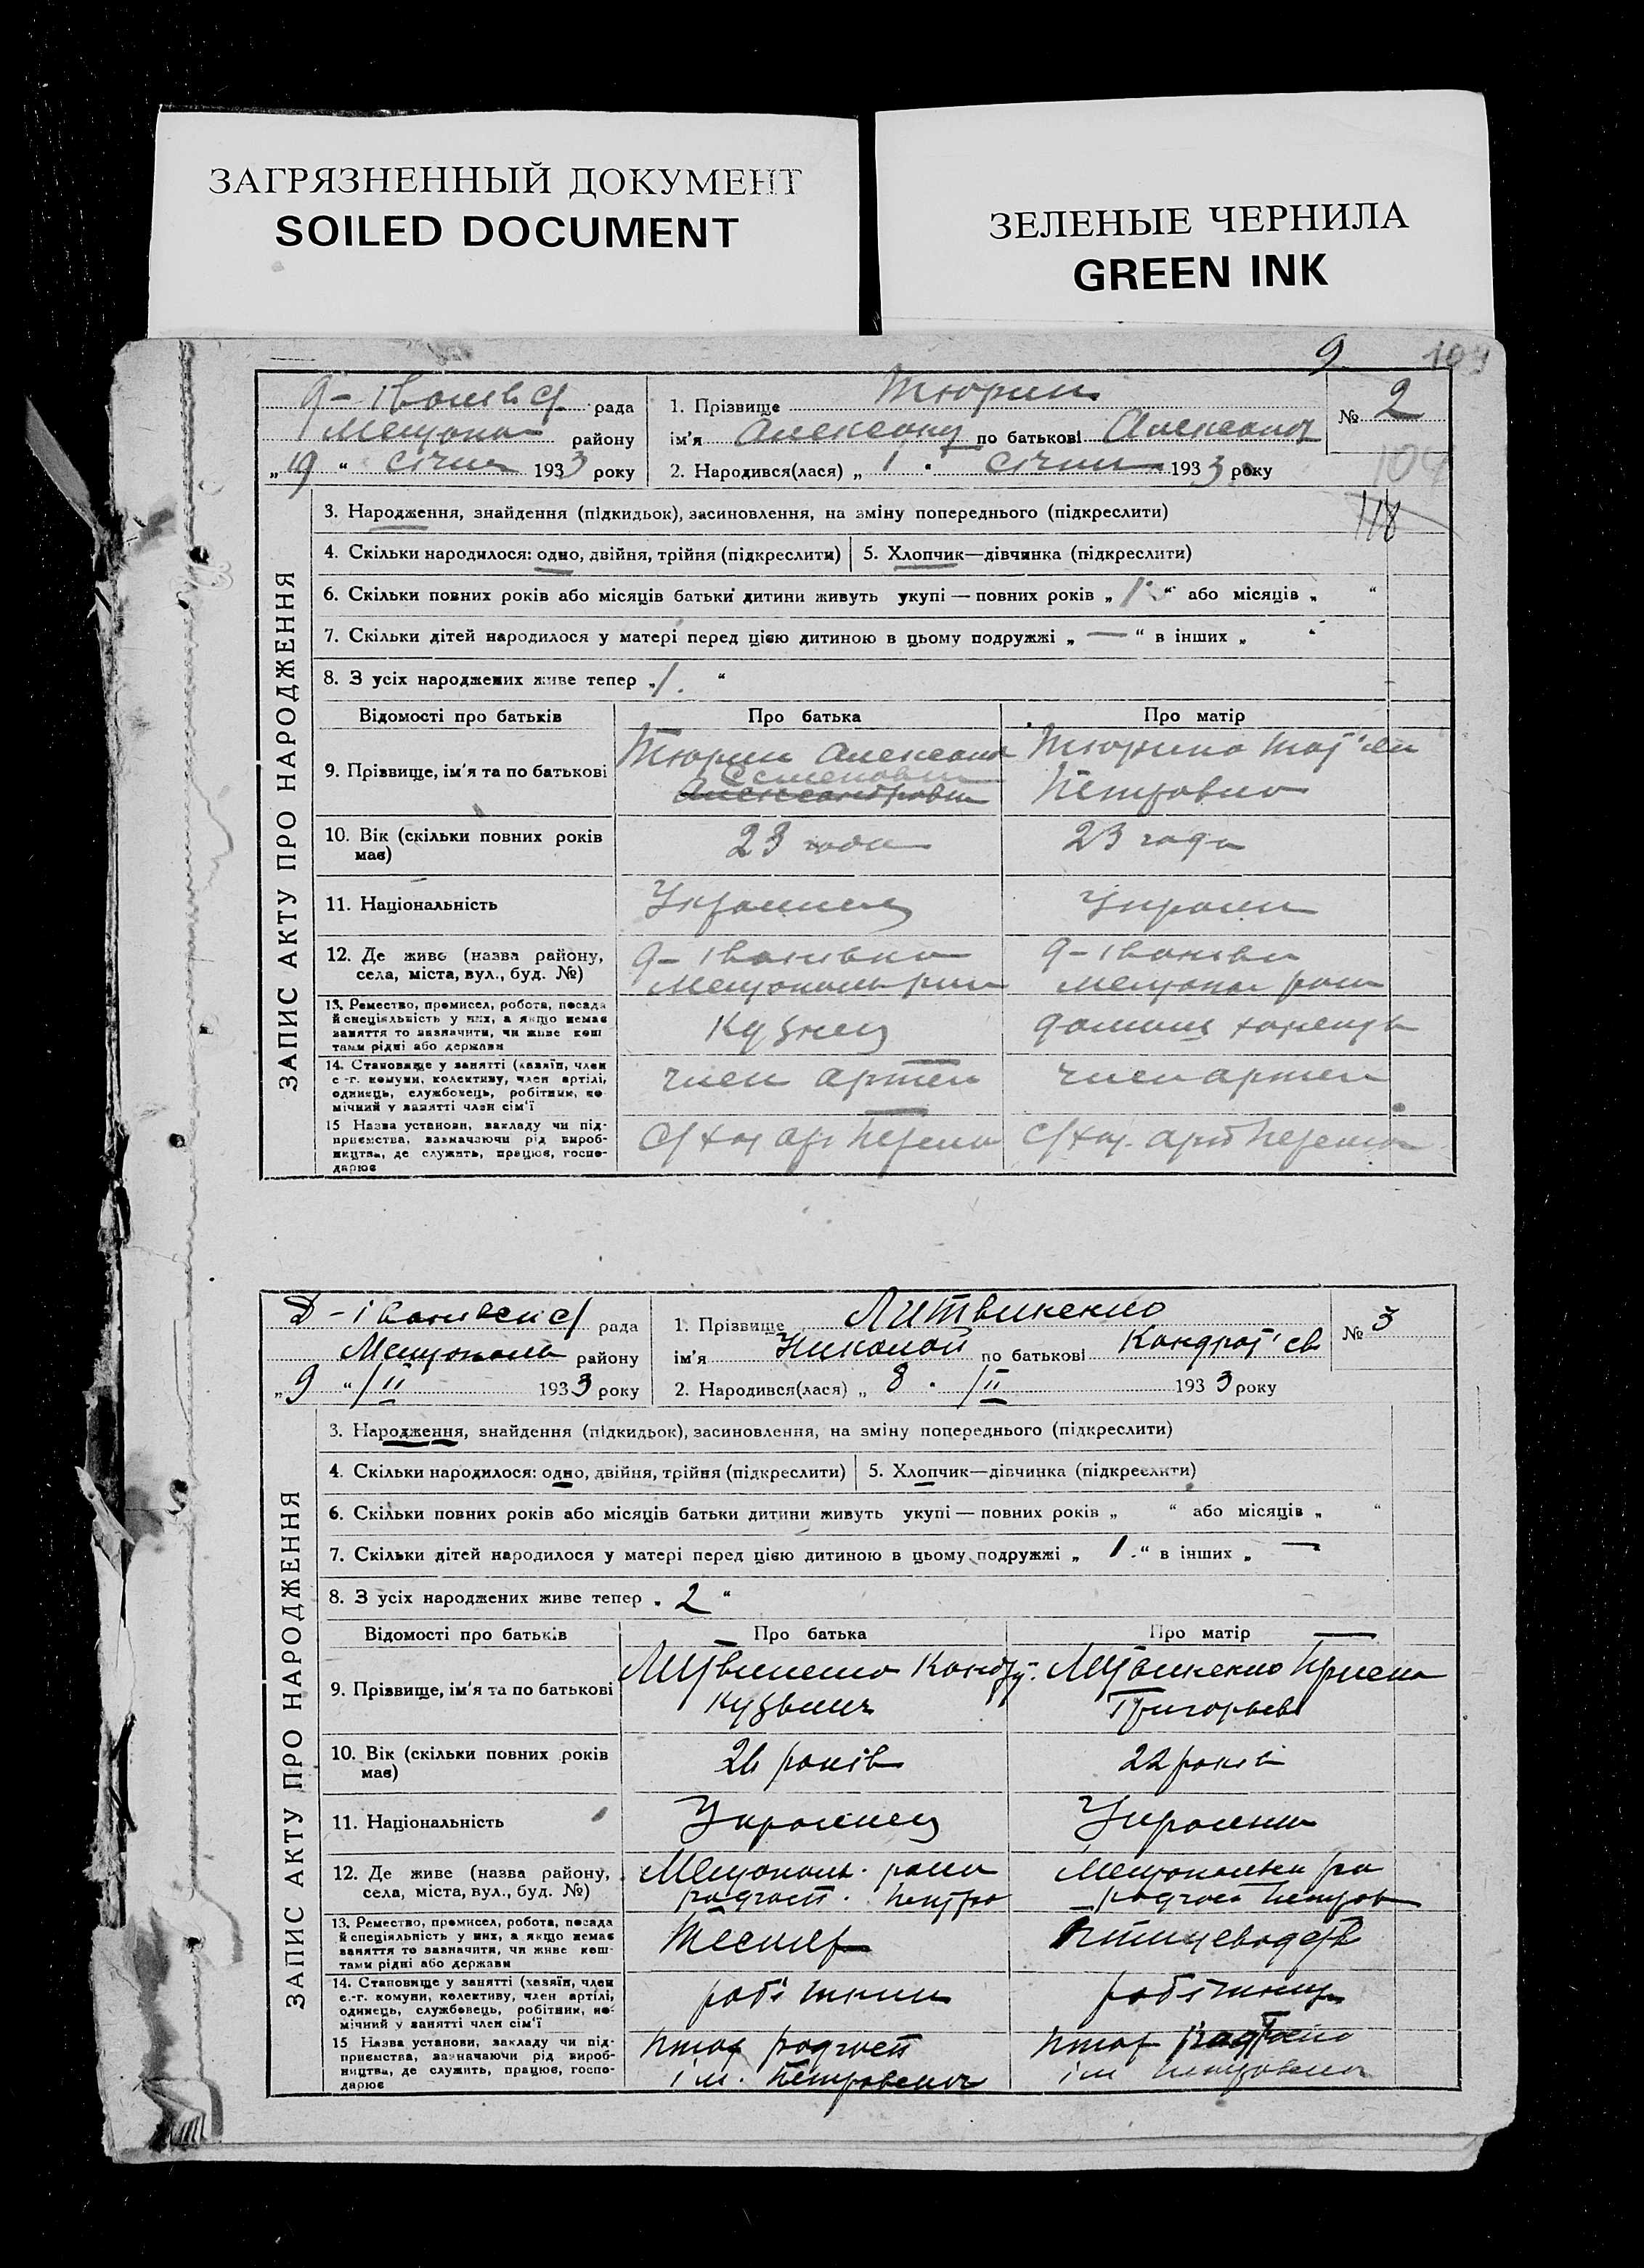 ЗАГРЯЗНЕННЫЙ ДОКУМЕНТ
SOILED DOCUMENT
ЗЕЛЕНЫЕ ЧЕРНИЛА
GREEN INK
9 109
рада
району
„19 “ січня 1933 року
1. Прізвище Тюрин
ім'я Александ по батькові Александ
2. Народився(лася) „ 1 “ січня 1933 року
№ 2
104
118
ЗАПИС АКТУ ПРО НАРОДЖЕННЯ
3. Народження, знайдення (підкидьок), засиновлення, на зміну попереднього (підкреслити)
4. Скільки народилося: одно, двійня, трійня (підкреслити) 5. Хлопчик—дівчинка (підкреслити)
6. Скільки повних років або місяців батьки дитини живуть укупі — повних років „ 1 “ або місяців „ “
7. Скільки дітей народилося у матері перед цією дитиною в цьому подружжі „ — “ в інших „ “
8. З усіх народжених живе тепер „ 1 “
Відомості про батьків Про батька Про матір
9. Прізвище, ім'я та по батькові
Тюрин Александ
Семенович
Александрович
Тюрина
Петровна
10. Вік (скільки повних років
має)
23 года 23 года
11. Національність
Украинец Украин
12. Де живе (назва району,
села, міста, вул., буд. №)
13. Ремество, промисел, робота, посада
й спеціяльність у них, а якщо немає
заняття то зазначити, чи живе кош
тами рідні або держави
Кузнец
14. Становище у занятті (хазяїн, член
с.-г. комуни, колективу, член артілі,
одинець, службовець, робітник, по
мічний у занятті член сім'ї
член артел член артел
15 Назва установи, закладу чи під-
приємства, зазначаючи рід вироб-
ництва, де служить, працює, госпо-
дарює
рада
району
„ 9 “ /II 1933 року
1. Прізвище Литвиненко
ім'я Николай по батькові Кондрат'єв
2. Народився(лася) „ 8 “ /II 1933 року
№ 3
ЗАПИС АКТУ ПРО НАРОДЖЕННЯ
3. Народження, знайдення (підкидьок), засиновлення, на зміну попереднього (підкреслити)
4. Скільки народилося: одно, двійня, трійня (підкреслити) 5. Хлопчик—дівчинка (підкреслити)
6. Скільки повних років або місяців батьки дитини живуть укупі — повних років „ “ або місяців „ “
7. Скільки дітей народилося у матері перед цією дитиною в цьому подружжі „ 1 “ в інших „ —
8. З усіх народжених живе тепер „ 2 “
Відомості про батьків Про батька Про матір
9. Прізвище, ім'я та по батькові
Литвиненко Кондр.
Кузьмич
Литвиненко
Григорьев
10. Вік (скільки повних років
має)
26 років 22 років
11. Національність
Украинец Украинк
12. Де живе (назва району,
села, міста, вул., буд. №)
13. Ремество, промисел, робота, посада
й спеціяльність у них, а якщо немає
заняття то зазначити, чи живе кош-
тами рідні або держави
Тесляр
14. Становище у занятті (хазяїн, член
с.-г. комуни, колективу, член артілі,
одинець, службовець, робітник, по-
мічний у занятті член сім'ї
робітник робітниц
15 Назва установи, закладу чи під-
приємства, зазначаючи рід вироб-
ництва, де служить, працює, госпо-
дарює
радгосп
ім. Петровского
ім